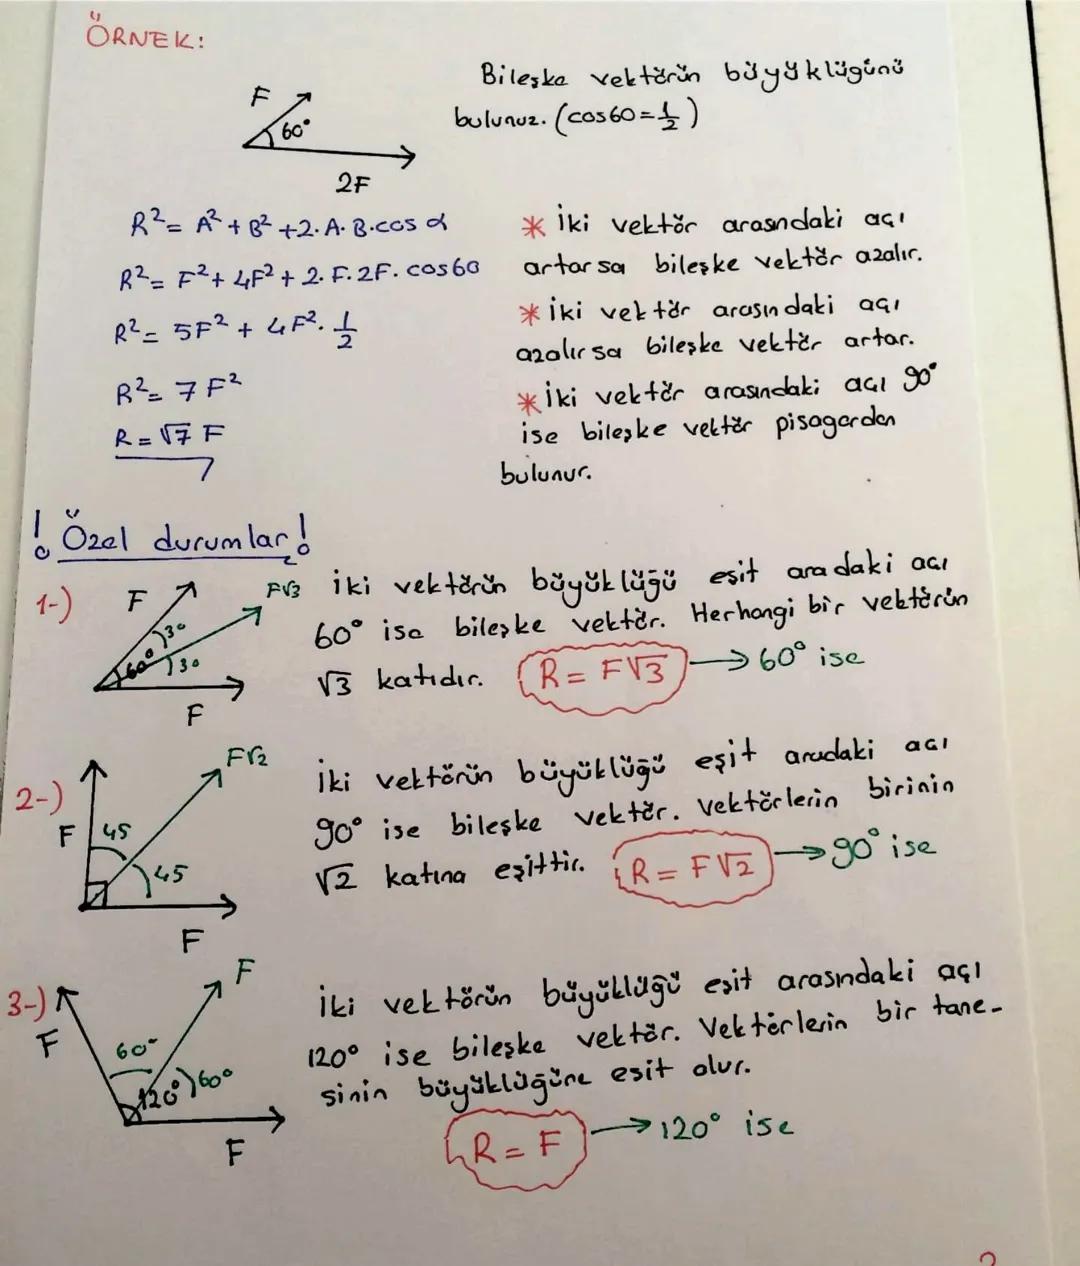 ÖRNEK:
F
60°
2F
Bileşke vektörün büyüklüğünü
bulunuz. (cos60=1/2)
R²= A²+B²+2.A.B.cos α
R²= F²+4F²+2.F.2F.cos60
R²= 5F²+4F².1/2
R²= 7F²
R=√7 F
* İki vektör arasındaki açı
artarsa bileşke vektör azalır.
* İki vektör arasındaki açı
azalırsa bileşke vektör artar.
* İki vektör arasındaki açı 90°
ise bileşke vektör pisagordan
bulunur.
! Özel durumlar!
1-)
F
F√3
30
60°
30
F
İki vektörün büyüklüğü eşit aradaki açı
60° ise bileşke vektör. Herhangi bir vektörün
√3 katıdır. R=F√3 → 60° ise
2-)
F
F√2
45
45
F
İki vektörün büyüklüğü eşit aradaki açı
90° ise bileşke vektör. Vektörlerin birinin
√2 katına eşittir. R=F√2 → 90° ise
3-)
F
F
60°
120°
60°
F
İki vektörün büyüklüğü eşit arasındaki açı
120° ise bileşke vektör. Vektörlerin bir tane-
sinin büyüklüğüne eşit olur.
R=F → 120° ise